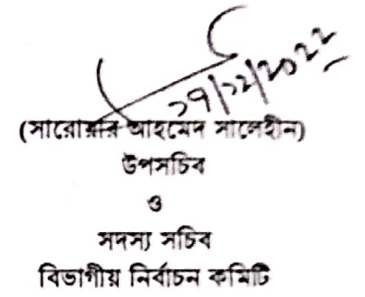 ২৭/১২/2022
(সারোয়ার আহমেদ সালেহীন)
উপসচিব
ও
সদস্য সচিব
বিভাগীয় নির্বাচন কমিটি